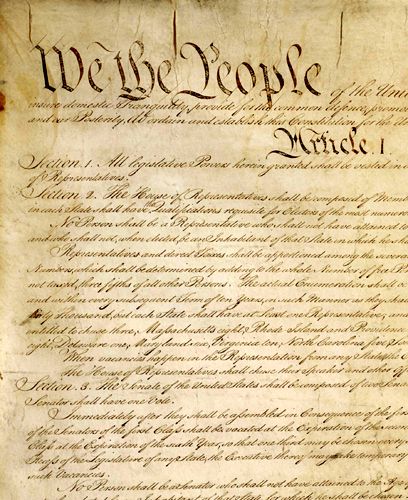 We the People of the Unit
insure domestic Tranquility, provide for the common defence, promo
and our Posterity, do ordain and establish this Constitution for the Un
Article. I.
Section. 1. All legislative Powers herein granted shall be vested in a
of Representatives.
Section. 2. The House of Representatives shall be composed of Mem
in each State shall have Qualifications requisite for Electors of the most numero
No Person shall be a Representative who shall not have attained to
and who shall not, when elected, be an Inhabitant of that State in which he sha
Representatives and direct Taxes shall be apportioned among the severa
Numbers, which shall be determined by adding to the whole Number of free Per
not taxed, three fifths of all other Persons. The actual Enumeration shall b
and within every subsequent Term of ten Years, in such Manner as they sha
thirty Thousand, but each State shall have at Least one Representative; and
entitled to chuse three, Massachusetts eight, Rhode Island and Providence
eight, Delaware one, Maryland six, Virginia ten, North Carolina five, Sou
When vacancies happen in the Representation from any State, the E
The House of Representatives shall chuse their Speaker and other Of
Section. 3. The Senate of the United States shall be composed of two Sena
Senator shall have one Vote.
Immediately after they shall be assembled in Consequence of the firs
of the Senators of the first Class shall be vacated at the Expiration of the secon
Class at the Expiration of the sixth Year, so that one third may be chosen every s
Recess of the Legislature of any State, the Executive thereof may make temporary
such Vacancies.
No Person shall be a Senator who shall not have attained to the Age